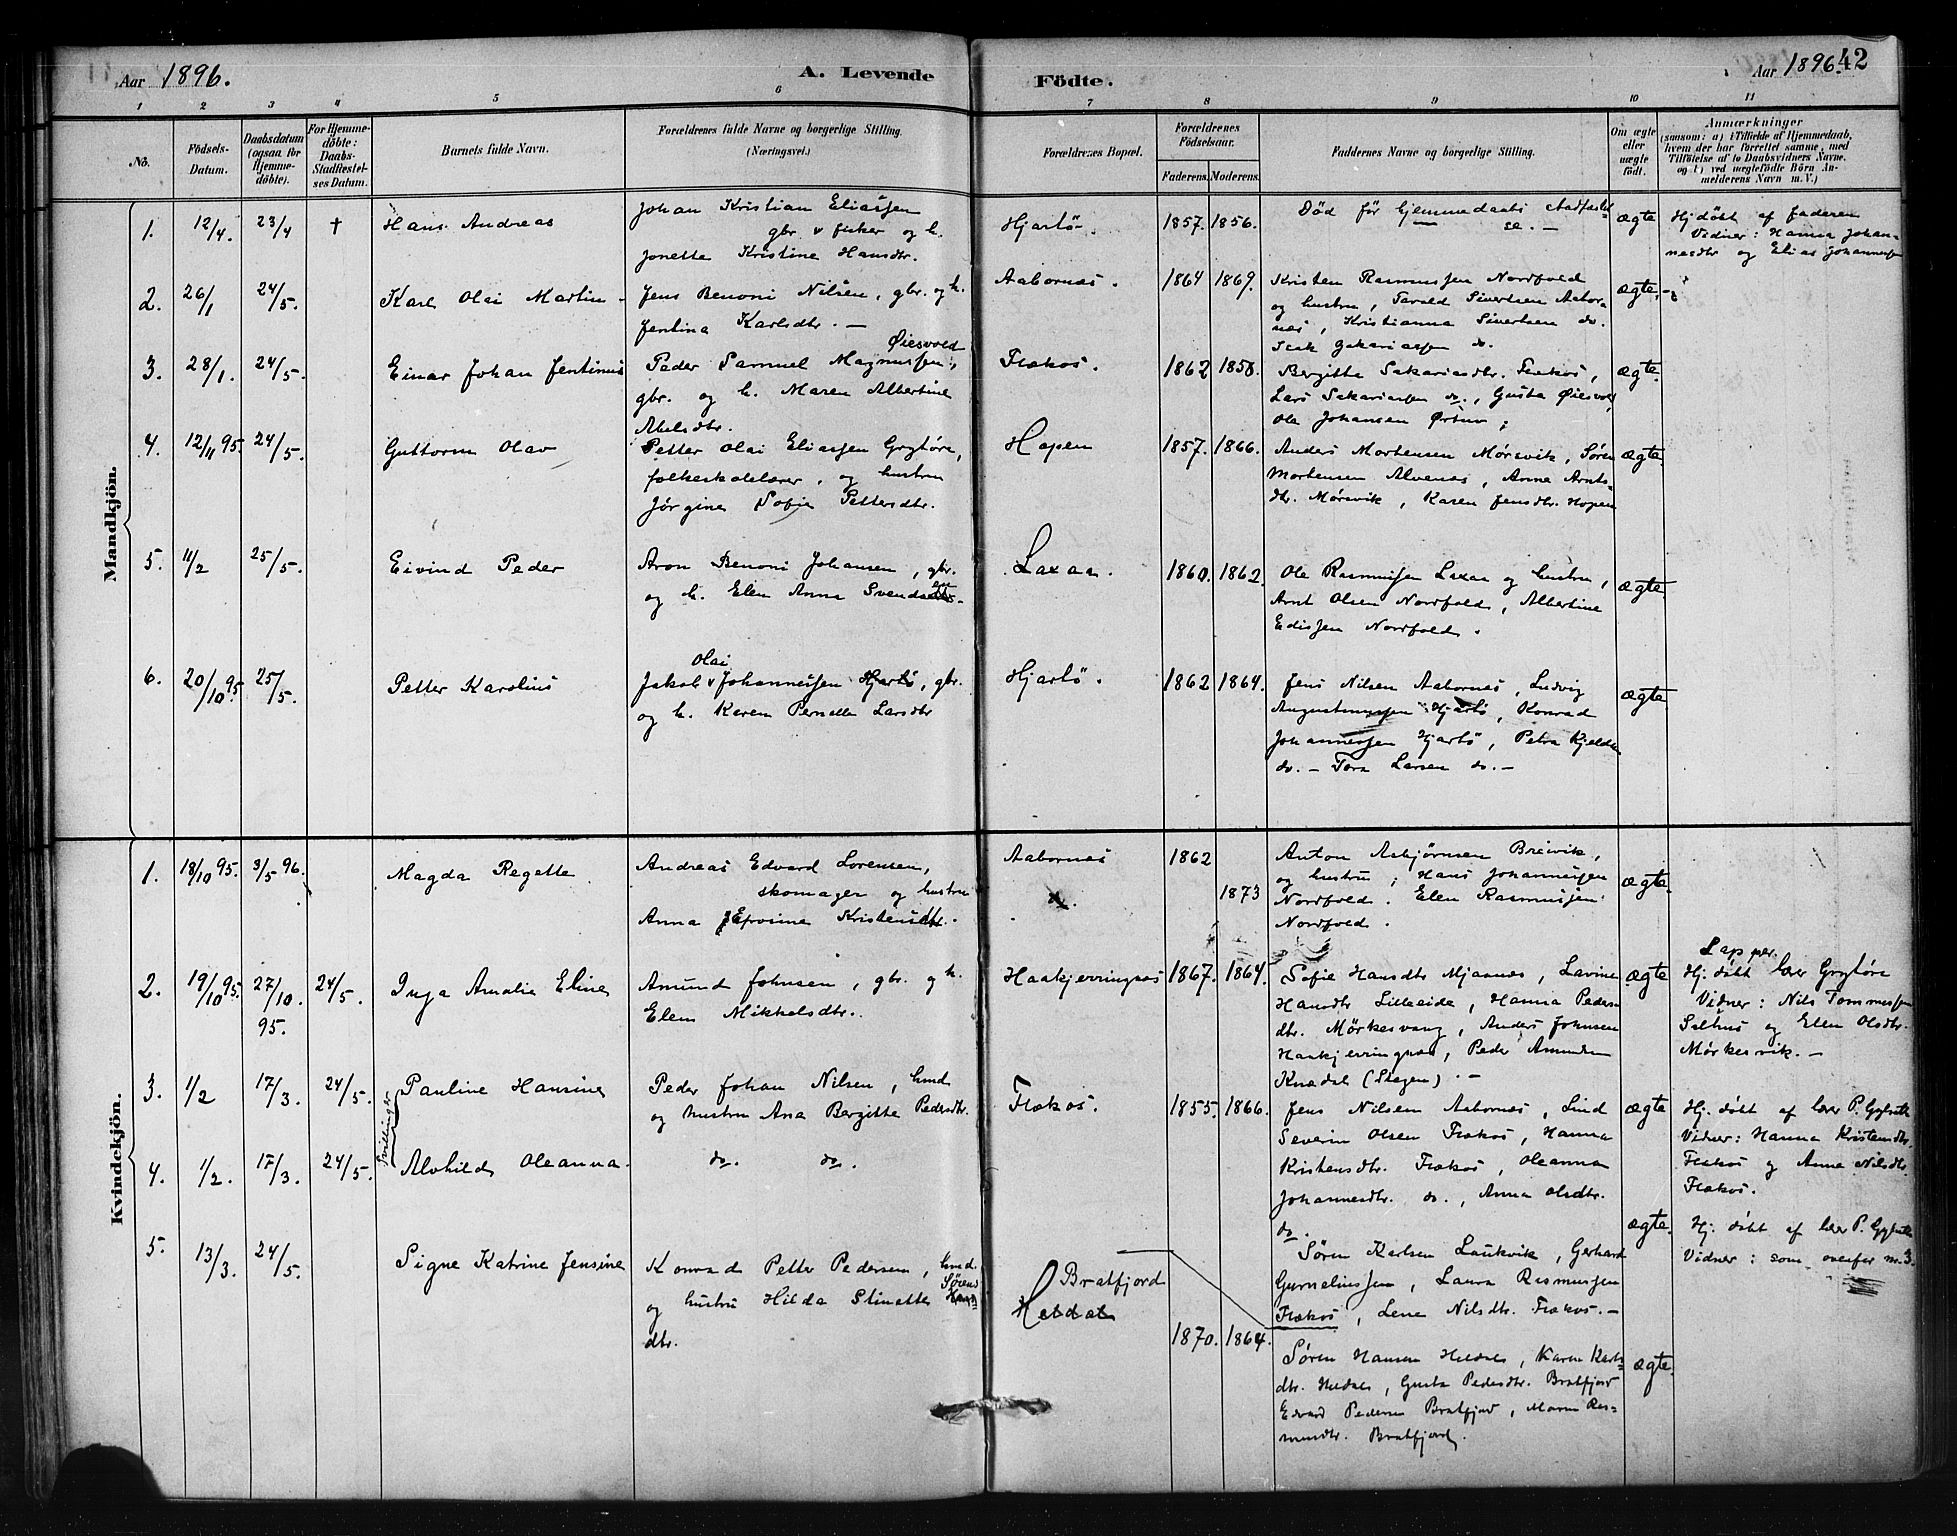 Aar 1896.
A. Levende
Födte.
Aar 1896.
42
1 2 3 4 5 6 7 8 9 10 11
No.
Födsels-Datum.
Daabsdatum (ogsaa for Hjemme-döbte).
For Hjemme-döbte: Daabs-Stadfæstel-ses Datum.
Barnets fulde Navn.
Forældrenes fulde Navne og borgerlige Stilling.
(Næringsvei.)
Forældrenes Bopæl.
Forældrenes Födselsaar.
Faderens. Moderens.
Faddernes Navne og borgerlige Stilling.
Om ægte eller uægte födt.
Anmærkninger
(saasom: a) i Tilfælde af Hjemmedaab,
hvem der har forrettet samme, med
Tilföielse af to Daabsvidners Navne,
og b) ved uægtefödte Börn An-
melderens Navn m. V.)
Mandkjön.
1. 12/4. 23/4 † Hans Andreas
Johan Kristian Eliassen
gbr. & fisker og h.
Jonette Kristine Hansdtr.
Hjartö. 1857. 1856.
Död før Hjemmedaabs stadfæstel-
se. —
ægte
Hj döbt af faderen
Vidner: Hanna Johan-
nesdtr og Elias Johannessen
2. 26/1 24/5. Karl Olai Martin
Jens Benoni Nilsen, gbr. og h.
Jentina Karlsdtr. —
Aabornæs. 1864 1869.
Kristen Rasmussen Nordfold
og hustru, Tarald Sivertsen Aabor-
næs, Kristianna Sivertsen do.
Isak Zakariassen do.
ægte.
3. 28/1. 24/5. Einar Johan Jentinus
Øiesvold
Peder Samuel Magnussen,
gbr. og h. Maren Albertine
Abelsdtr.
Flækos. 1862 1858.
Bergitte Sakariasdtr. Flækos,
Lars Sakariassen do., Gusta Øiesvold,
Ole Johansen
ægte.
4. 12/11 95. 24/5. Guttorm Olav
Petter Olai Eliassen Grytöre,
folkeskolelærer, og hustru
Jørgine Sofie Pettersdtr.
Hopen 1857. 1866.
Anders Mortensen Mörsvik, Sören
Mortensen Alvenes, Anne Arnts-
dtr. Mörsvik, Karen Jensdtr. Hopen
ægte.
5. 11/2 25/5. Eivind Peder
Aron Benoni Johansen, gbr.
og h. Elen Anna Svendsen
Laxaa. 1860. 1862.
Ole Rasmussen Laxaa og hustru,
Arnt Olsen Nordfold, Albertine
Edissen Nordfold.
ægte
6. 20/10 95. 25/5. Petter Karolius
Olai
Jakob Johannessen Hjartö, gbr.
og h. Karen Pernelle Larsdtr
Hjartö. 1862 1864.
Jens Nilsen Aabornes, Ludvig
Augustinussen Hjartö, Konrad
Johannessen Hjartö, Petra Kjeldsen
do. — Tora Larsen do. —
ægte
Kvindekjön.
1. 18/10 95. 3/5 96. Magda Regette
Andreas Edvard Lorensen,
skomager og hustru
Anna Efrosine Kristensdtr.
Aabornæs 1862 1873
Anton Asbjörnsen Breivik,
og hustru, Hans Johannessen
Nordfold. Elen Rasmussen
Nordfold.
ægte.
2. 19/10 95. 27/10. 95. 24/5. Inga Amalie Eline
Amund Johnsen, gbr. og h.
Elen Mikkelsdtr.
Haakjerringnæs 1867. 1864.
Sofie Hansdtr Mjaanes, Lavine
Hansdtr Lilleeide, Hanna Peders-
dtr. Mörkesvang, Anders Johnsen
Haakjerringnæs, Peder Amundsen
Knædal (Stegen). —
ægte
Lapper.
Hj. döbt lærer Grytöre
Vidner: Nils Tommessen
Selhus og Elen Olsdtr.
Mörkesvik. —
3. 1/2 17/3. 24/5. Pauline Hansine
Tvillinger
Peder Johan Nilsen, lmd
og hustru Ana Bergitte Pedersdtr.
Flækos. 1855. 1866.
Jens Nilsen Aabornæs, Lind
Severin Olsen Flækos, Hanna
Kristensdtr. Flækos, Oleanna
Johannesdtr. do., Anna Olsdtr.
do.
ægte
Hj. döbt af lærer P. Grytöre
Vidner: Hanna Kristensdtr.
Flækos og Anne Nilsdtr.
Flækos.
4. 1/2. 17/3. 24/5. Alvhild Oleanna.
do. do.
Sören Karlsen Laukvik, Gerhard
Laura Rasmussen
Flækos, Lene Nilsdtr. Flækos. —
ægte.
Hj. döbt af lærer P. Grytöre
Vidner: som ovenfor nr. 3.
5. 13/3. 24/5. Signe Katrine Jensine
Konrad Petter Pedersen, lmd.
Sörens
og hustru Hilda Stinette
dtr.
Bratfjord
Heldal
1870. 1864.
Sören Hansen Heldal, Karen Karls-
dtr. Heldal, Gusta Pedersdtr. Bratfjord
Edvard Pedersen Bratfjord, Maren Ras-
musdtr. Bratfjord.
ægte.